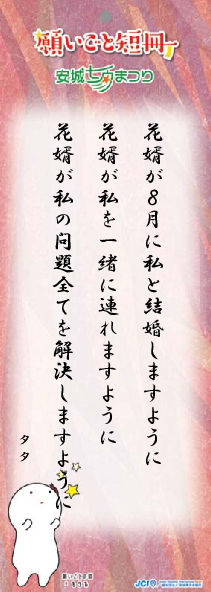 願いごと短冊
安城七夕まつり
花婿が8月に私と結婚しますように
花婿が私を一緒に連れますように
花婿が私の问題全てを解決しますように
タタ
願いごと短冊
JCI